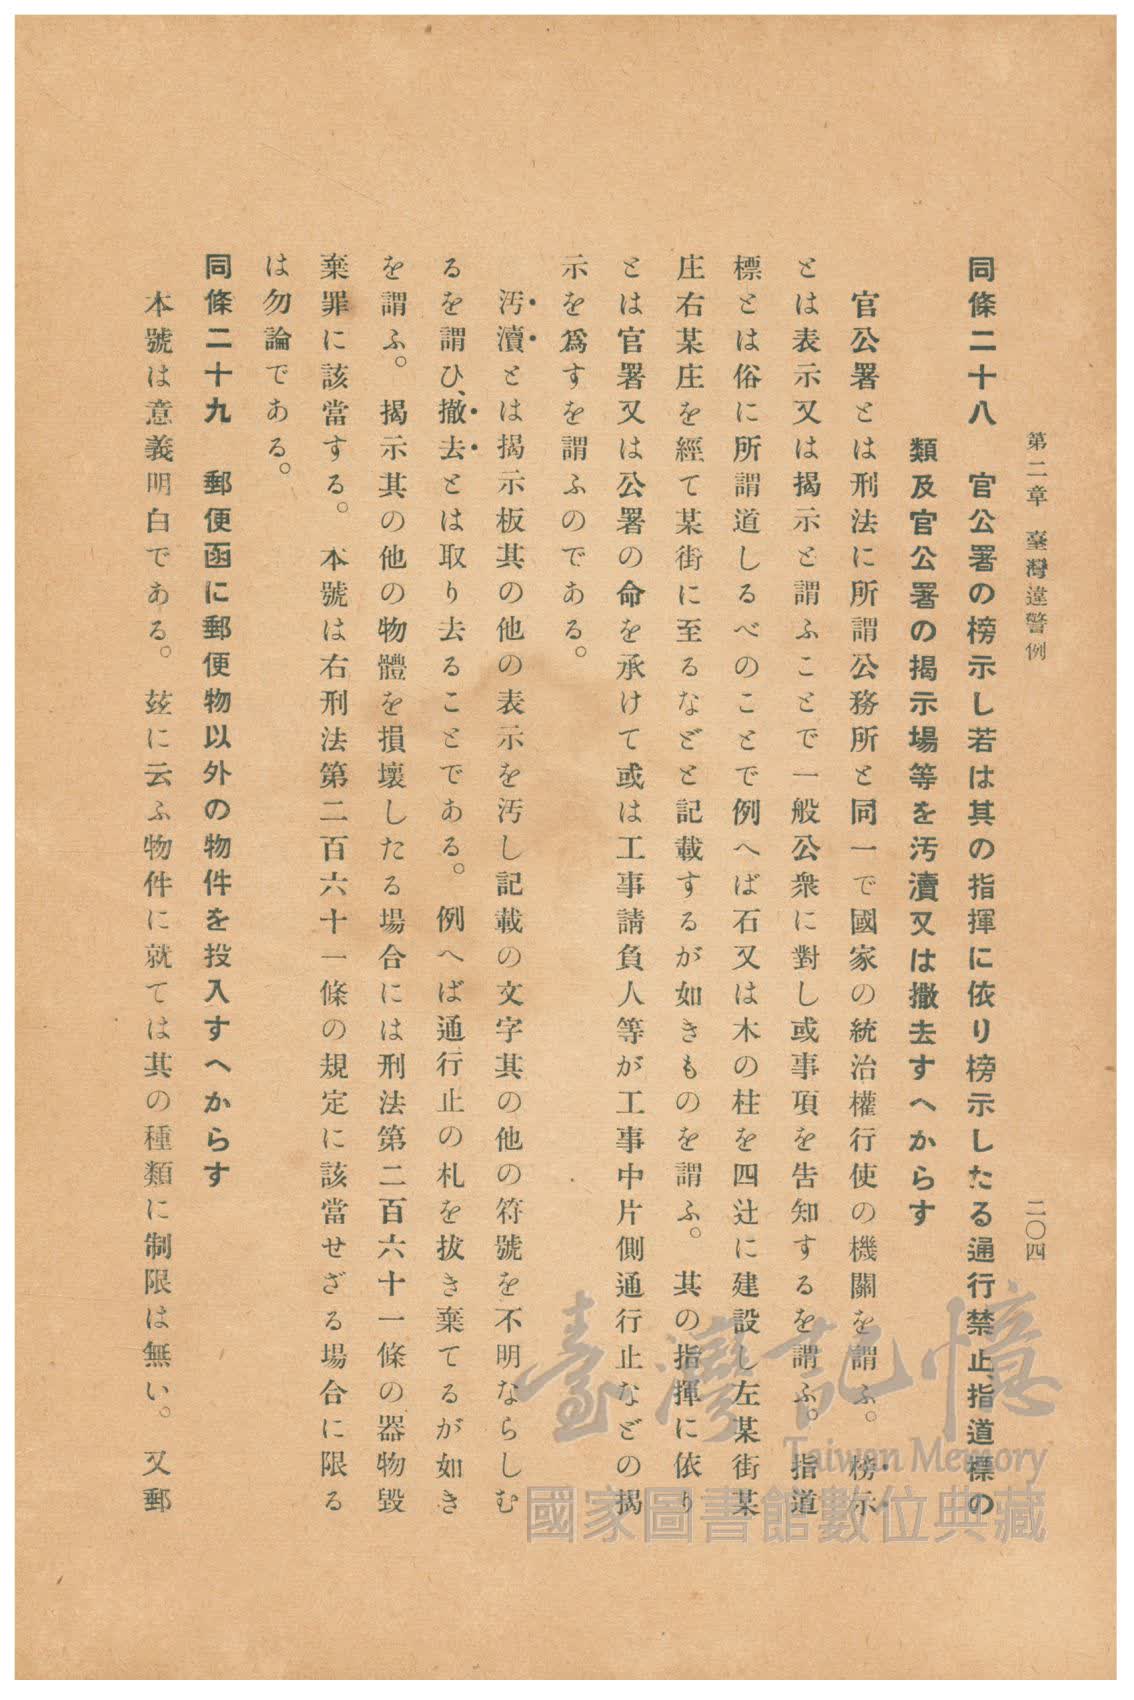 第二章 臺灣違警例
二〇四
同條二十八 官公署の榜示し若は其の指揮に依り榜示したる通行禁止、指道標の
類及官公署の揭示場等を汚瀆又は撤去すへからす
官公署とは刑法に所謂公務所と同一で國家の統治權行使の機關を謂ふ。榜示
とは表示又は揭示と謂ふことで一般公衆に對し或事項を告知するを謂ふ。指道
標とは俗に所謂道しるべのことで例へば石又は木の柱を四辻に建設し左某街某
庄右某庄を經て某街に至るなどと記載するが如きものを謂ふ。其の指揮に依り
とは官署又は公署の命を承けて或は工事請負人等が工事中片側通行止などの揭
示を爲すを謂ふのである。
汚瀆とは揭示板其の他の表示を汚し記載の文字其の他の符號を不明ならしむ
るを謂ひ、撤去とは取り去ることである。例へば通行止の札を拔き棄てるが如き
を謂ふ。揭示其の他の物體を損壞したる場合には刑法第二百六十一條の器物毀
棄罪に該當する。本號は右刑法第二百六十一條の規定に該當せざる場合に限る
は勿論である。
同條二十九 郵便函に郵便物以外の物件を投入すへからす
本號は意義明白である。玆に云ふ物件に就ては其の種類に制限は無い。又郵
臺灣記憶
Taiwan Memory
國家圖書館數位典藏